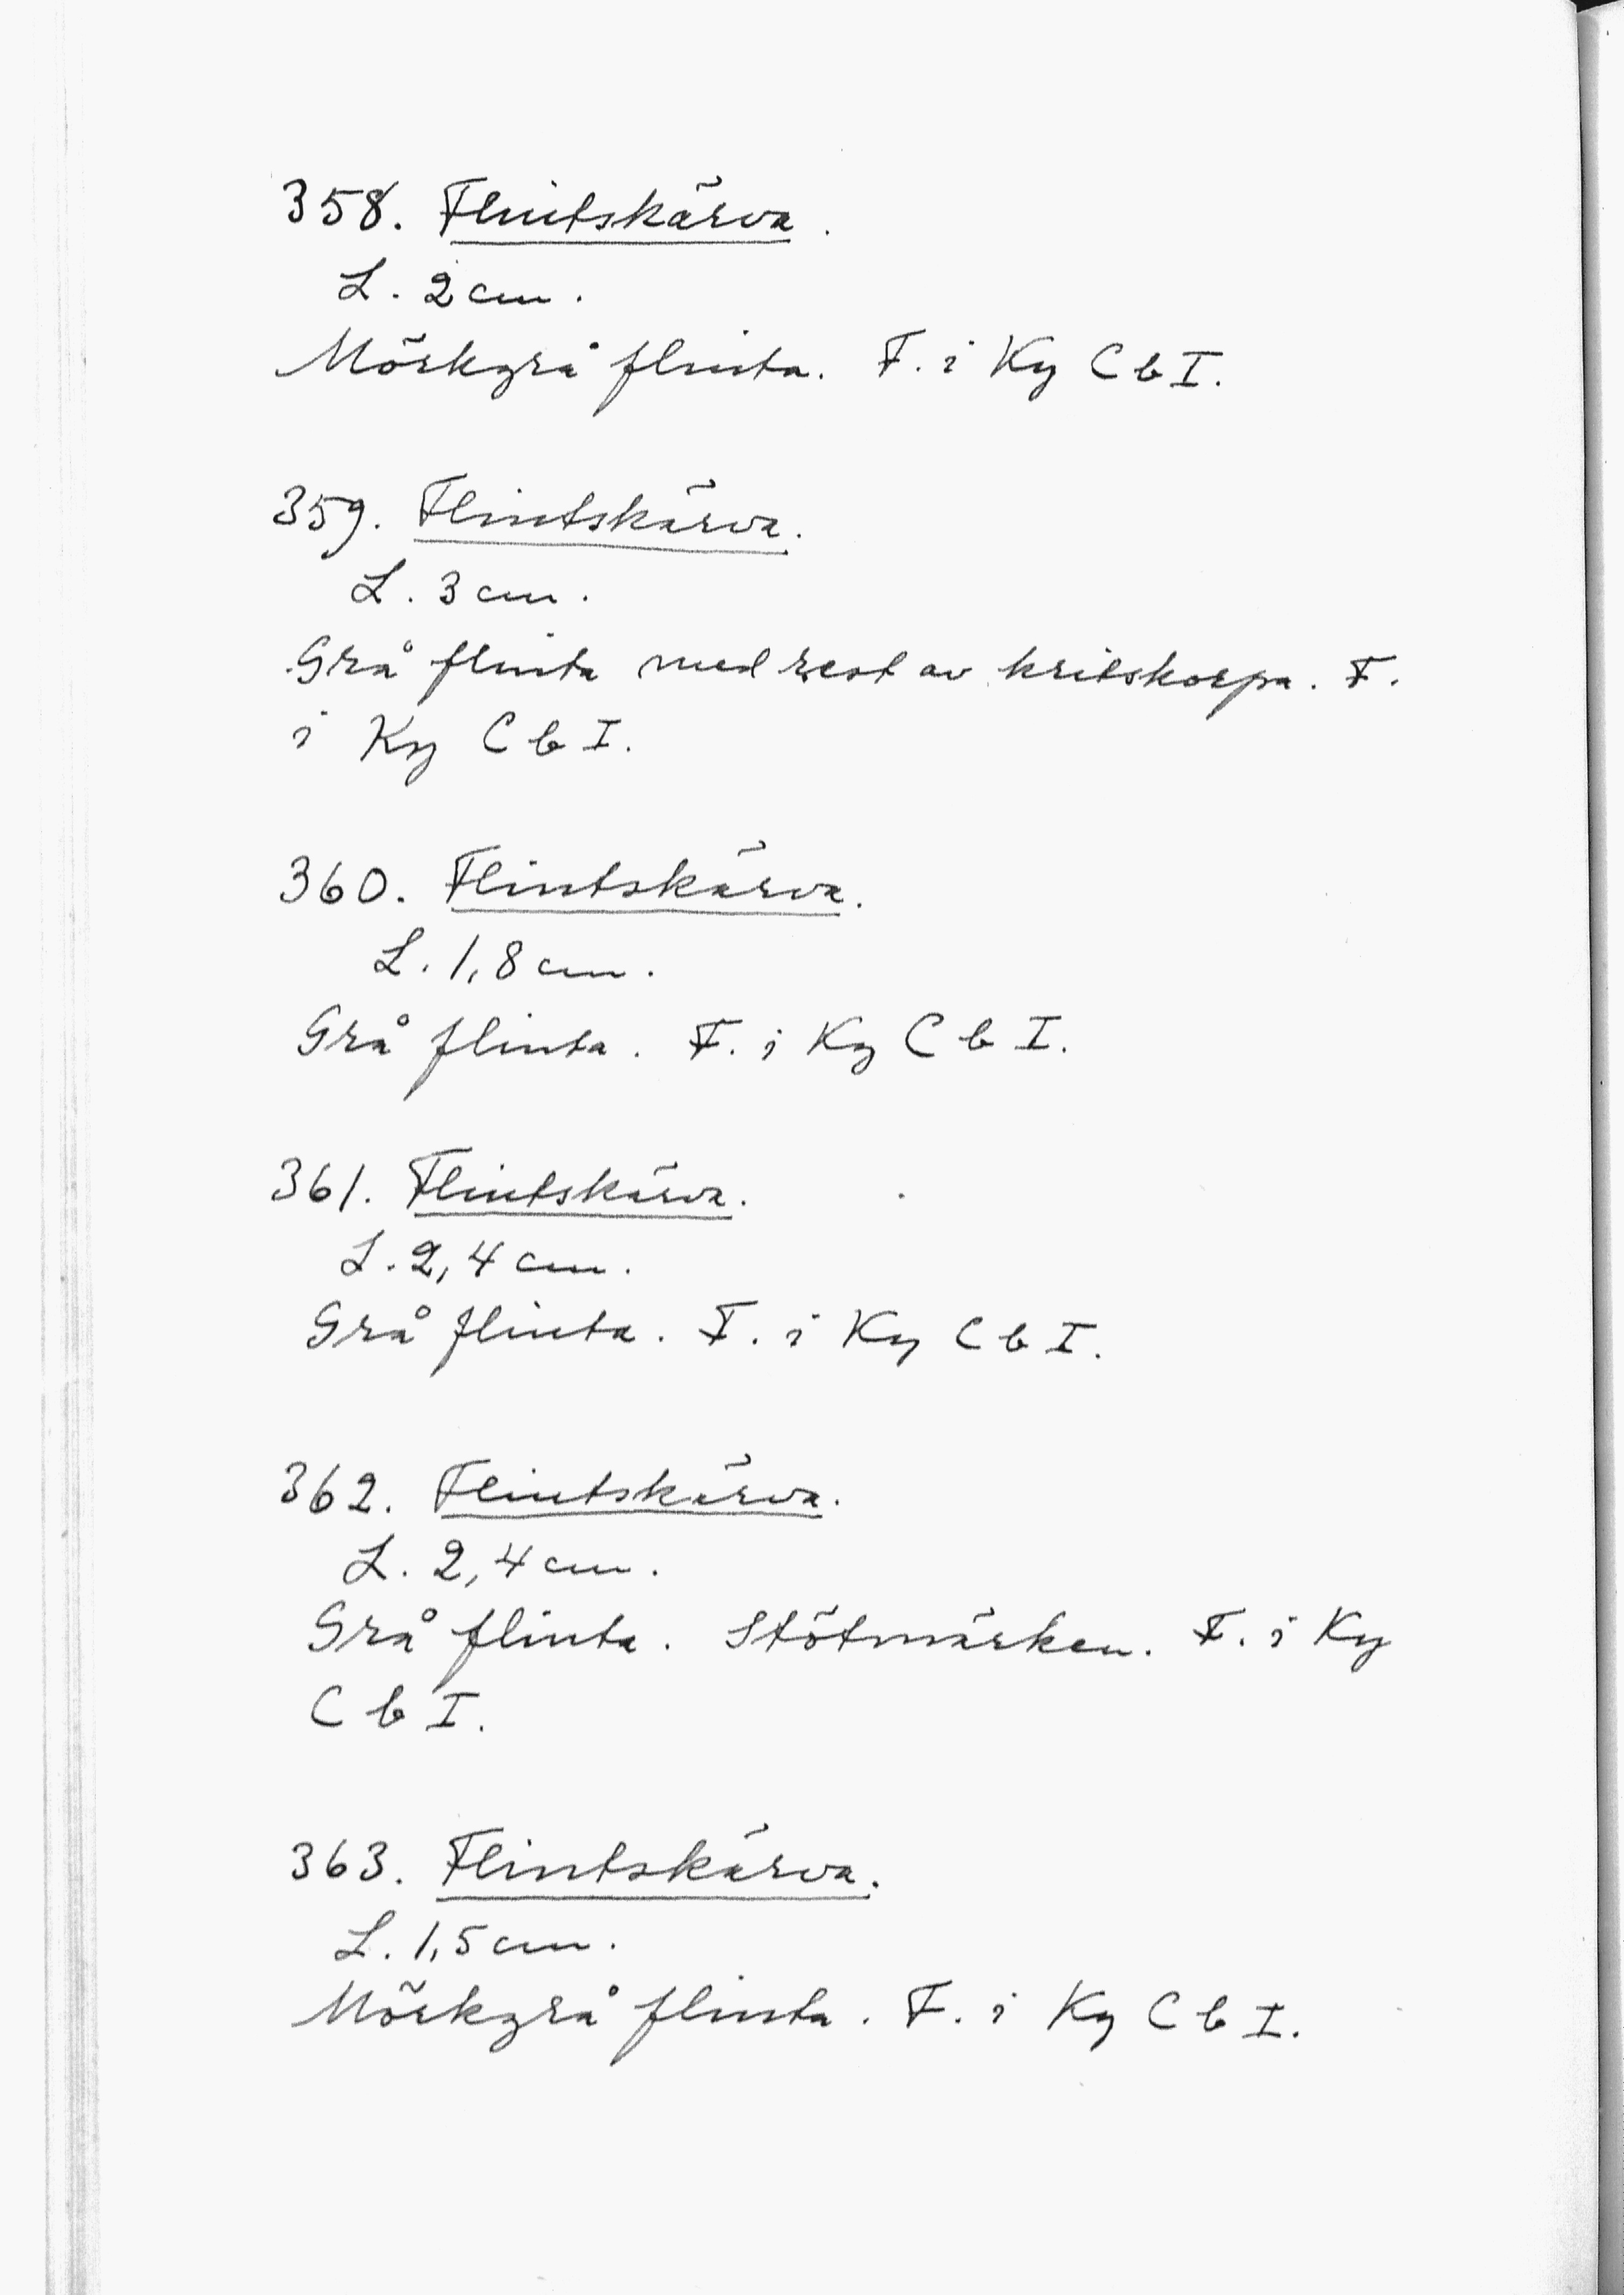 358. Flintskärva.
L. 2 cm.
Mörkgrå flinta. F. i Ky C b I.
359. Flintskärva.
L. 3 cm.
Grå flinta med rest av kritskorpa. F.
i Ky C b I.
360. Flintskärva.
L. 1,8 cm.
Grå flinta. F. i Ky C b I.
361. Flintskärva.
L. 2,4 cm.
Grå flinta. F. i Ky C b I.
362. Flintskärva.
L. 2,4 cm.
Grå flinta. Stötmärken. F. i Ky
C b I.
363. Flintskärva.
L. 1,5 cm.
Mörkgrå flinta. F. i Ky C b I.